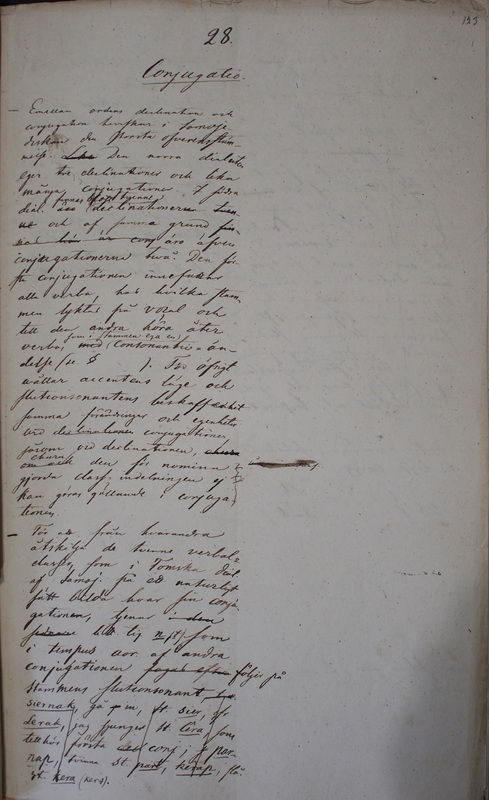 123
28.
Conjugatio.
— Emellan ordens declination och
conjugation herrskar i Samoje-
diskan den största öfverensstäm-
melse. Den norra dialecten
eger tre declinationer och lika
många conjugationer. I södra
dial. finnes blott tvenne
declinationer
och af samma grund
äro äfven
conjugationerna två. Den för-
sta conjugationen innefattar
alla verba, hos hvilka stam-
men lyktas på vocal och
till den andra höra åter
verba, som i stammen ega en
consonantisk än-
delse (se § ). För öfrigt
vållar accentens läge och
slutconsonantens beskaffenhet
samma förändringar och egenheter
vid conjugationen,
såsom vid declinationen,
ehuru den för nomina
gjorda class-indelningen ej
kan göras gällande i conjuga-
tionen.
— För att från hvarandra
åtskilja de tvenne verbal-
classer, som i Tomska dial.
af Samoj. på ett naturligt
sätt bilda hvar sin conju-
gation, tjenar
n, som
i tempus aor. af andra
conjugationen följer på
stammens slutconsonant
siernak, gå in, st. sier,
lerak, st. Cera, som
tillhör första conj.; per-
nap, st. part, kerap,
st. kera (kers).